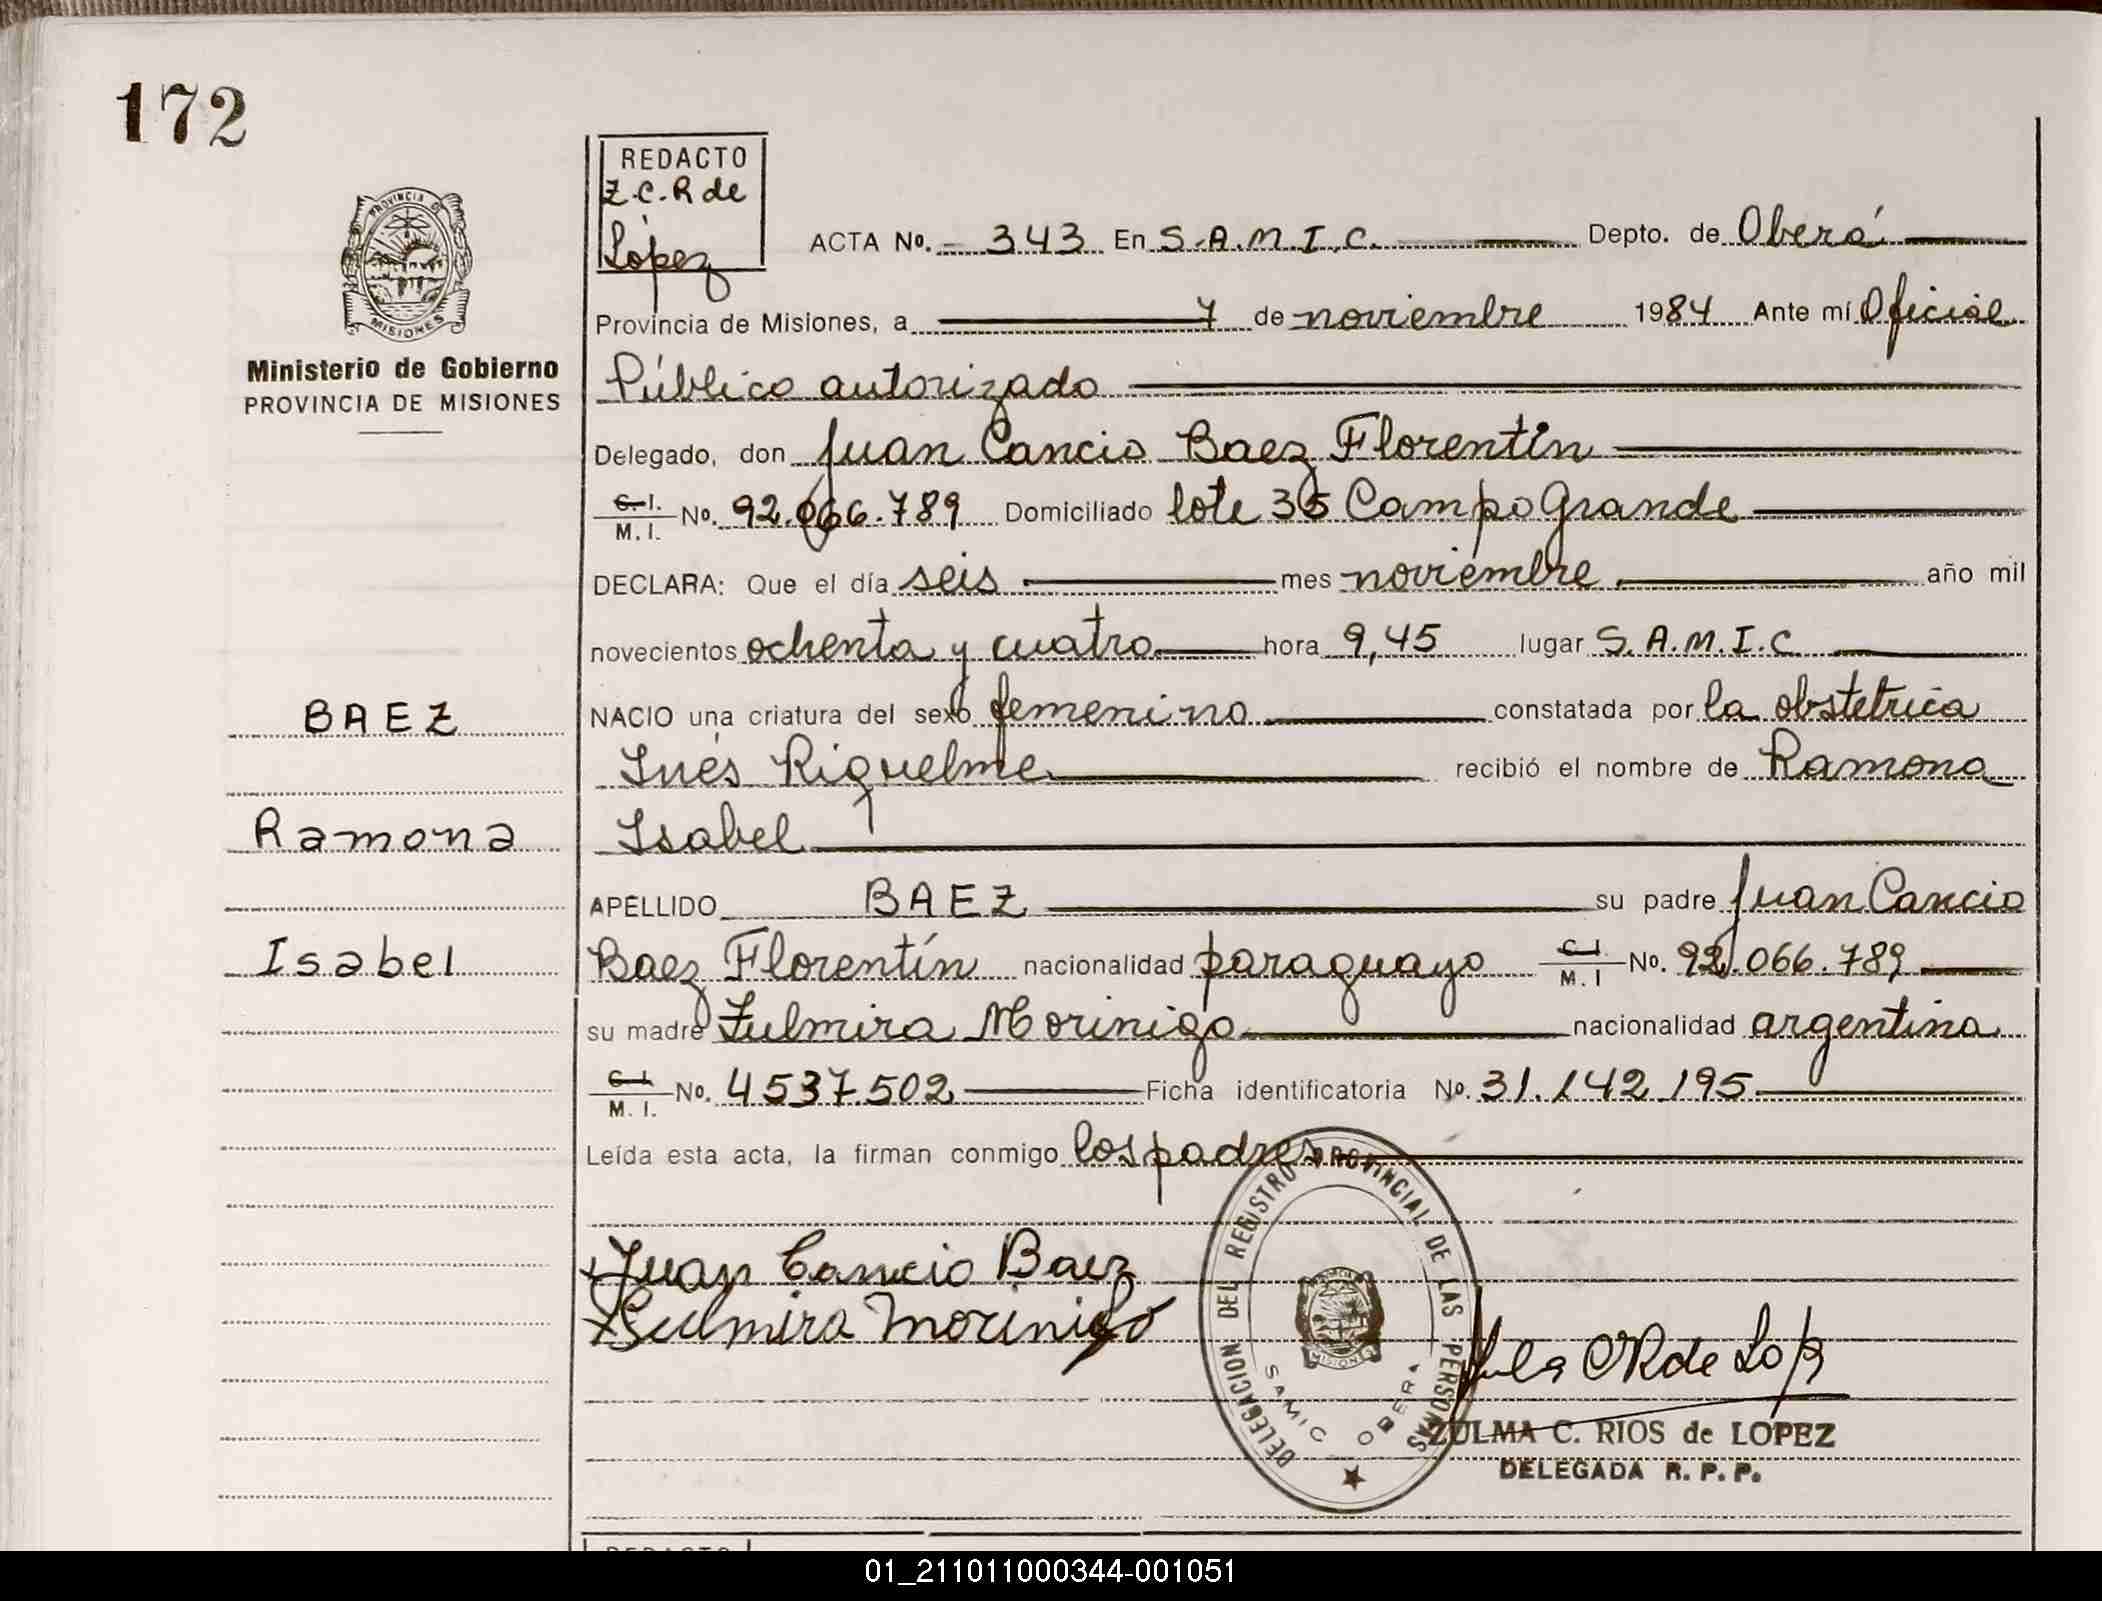 172
REDACTO
Z.C.R de
López
PROVINCIA DE
MISIONES
Ministerio de Gobierno
PROVINCIA DE MISIONES
ACTA No. 343 En S.A.M.I.C. Depto. de Oberá
Provincia de Misiones, a 7 de noviembre 1984 Ante mí Oficial
Público autorizado
Delegado, don Juan Cancio Baez Florentín
C.I. M.I. No. 92.066.789 Domiciliado lote 35 Campo Grande
DECLARA: Que el día seis mes noviembre año mil
novecientos ochenta y cuatro hora 9,45 lugar S.A.M.I.C.
BAEZ
NACIO una criatura del sexo femenino constatada por la obstetrica
Inés Riquelme recibió el nombre de Ramona
Ramona
Isabel
APELLIDO BAEZ su padre Juan Cancio
Isabel
Baez Florentín nacionalidad paraguayo C.I. M.I No. 92.066.789
su madre Zulmira Morinigo nacionalidad argentina
C.I. M.I. No. 4537.502 Ficha identificatoria No. 31.142.195
Leída esta acta, la firman conmigo los padres
Juan Cancio Baez
Zulmira Morinigo
DELEGACION DEL REGISTRO PROVINCIAL DE LAS PERSONAS
MISIONES
SAMIC OBERA
ZULMA C. RIOS de LOPEZ
DELEGADA R. P. P.
REDACTO
01_211011000344-001051